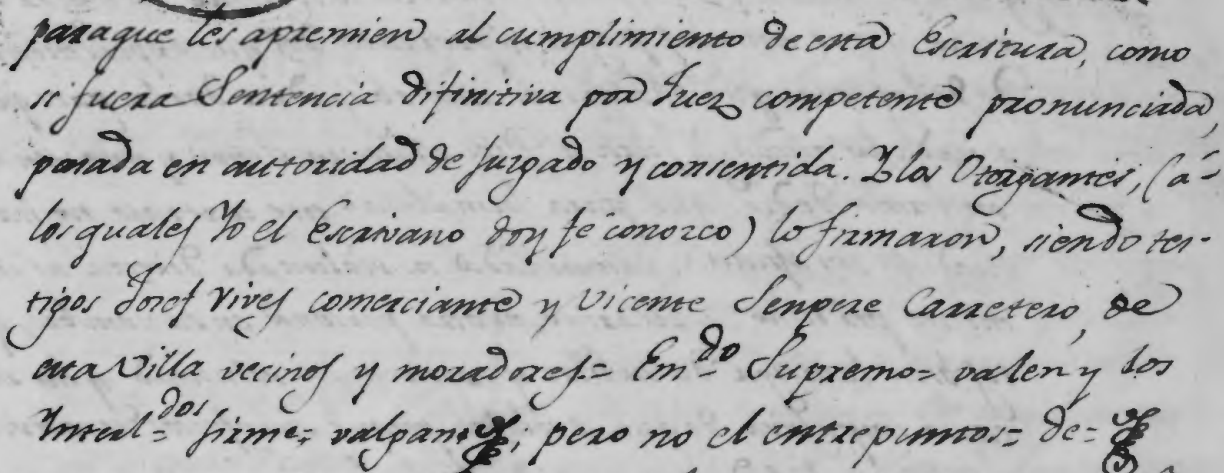 paraque les apremien al cumplimiento de esta Escritura, como
si fuera Sentencia difinitiva por Juez competente pronunciada,
pasada en auttoridad de Juzgado y consentida. Y los Otorgantes, (á-
los quales Yo el Escrivano doy fé conozco) lo firmaron, siendo tes-
tigos Josef Vives comerciante y Vicente Senpere Carretero, de
esta Villa vecinos y moradores.= Em.do Supremo= valen y los
Interl.dos firme= valgan; pero no el entrepuntos= de=